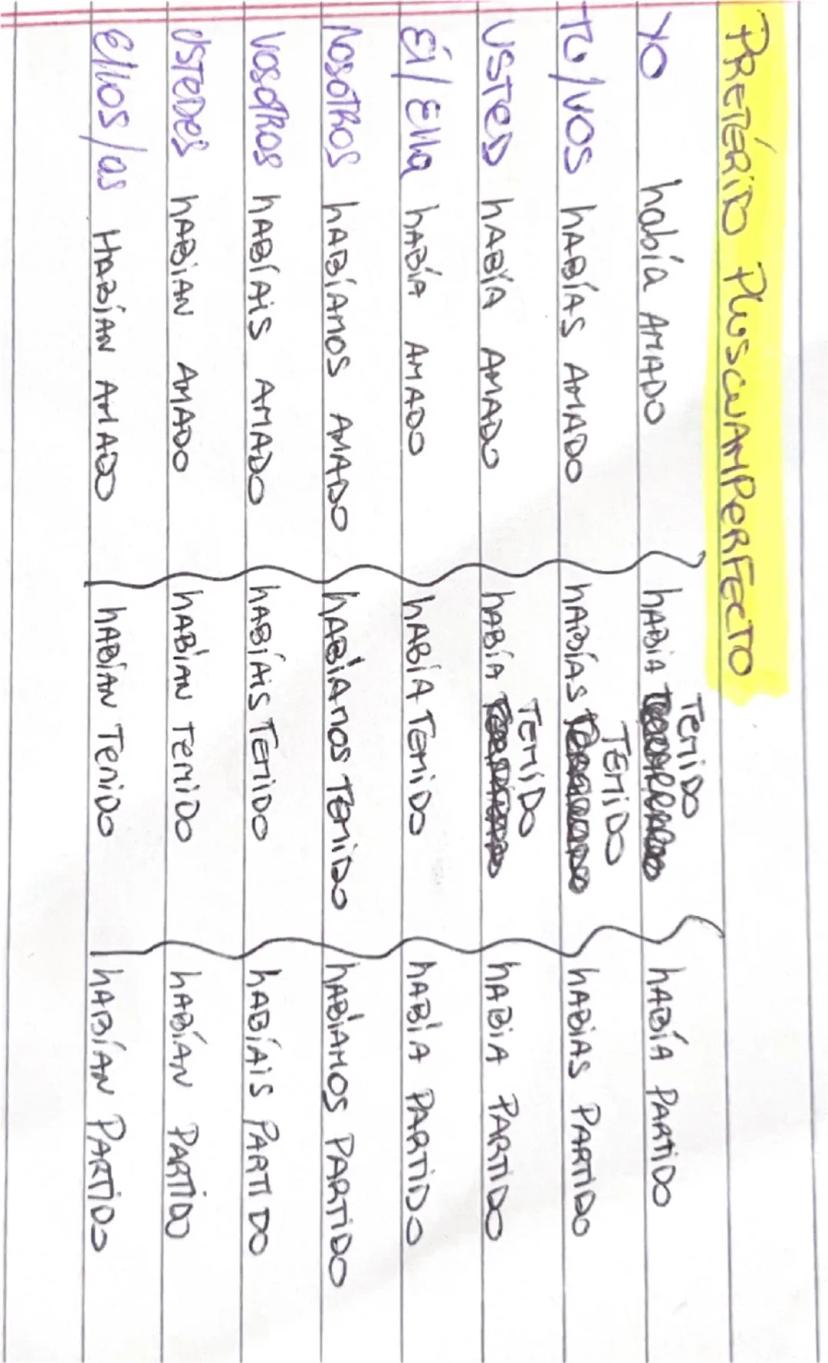 PRETÉRIDO PLUSCUAMPERFECTO
YO había AMADO hABÍA TEMIDO hABÍA PARTIDO
TÚ/VOS hABÍAS AMADO hABÍAS TEMIDO hABÍAS PARTIDO
USTED hABÍA AMADO hABÍA TEMIDO hABÍA PARTIDO
Él/Ella hABÍA AMADO hABÍA TEMIDO hABÍA PARTIDO
NOSOTROS hABÍAMOS AMADO hABÍAMOS TEMIDO hABÍAMOS PARTIDO
VOSOTROS hABÍAIS AMADO hABÍAIS TEMIDO hABÍAIS PARTIDO
USTEDES hABÍAN AMADO hABÍAN TEMIDO hABÍAN PARTIDO
Ellos/as HABÍAN AMADO hABÍAN TEMIDO hABÍAN PARTIDO